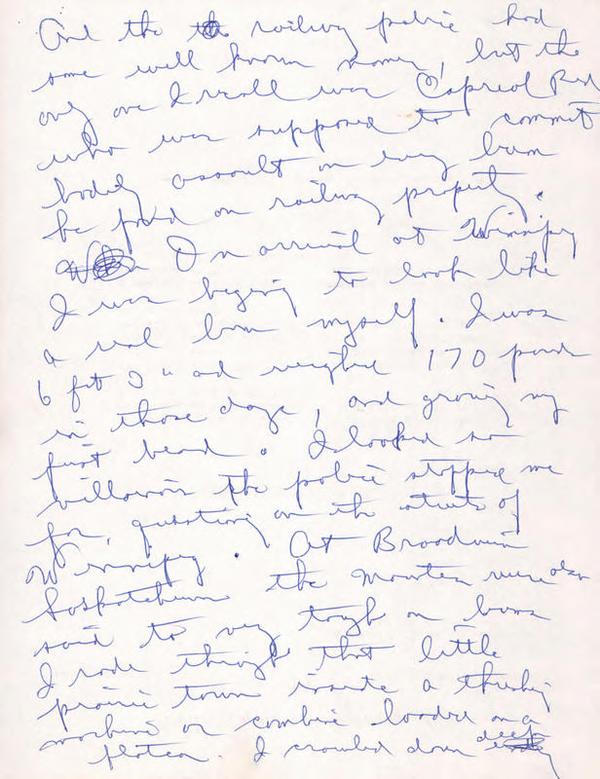 And the railway police had
some well known names, but the
only one I recall was Capreol Red
who was supposed to commit
bodily assault on every bum
he found on railway property.
On arrival at Winnipeg
I was begining to look like
a real bum myself. I was
6 feet 3" and weighed 170 pounds
in those days, and growing my
first beard. I looked so
villanous the police stopped me
for questioning on the streets of
Winnipeg. At Broadview
Saskatchewan the Mounties were also
said to very tough on bums
I rode through that little
prairie town inside a threshing
machine or combine loaded on a
flatcar. I crawled down deep